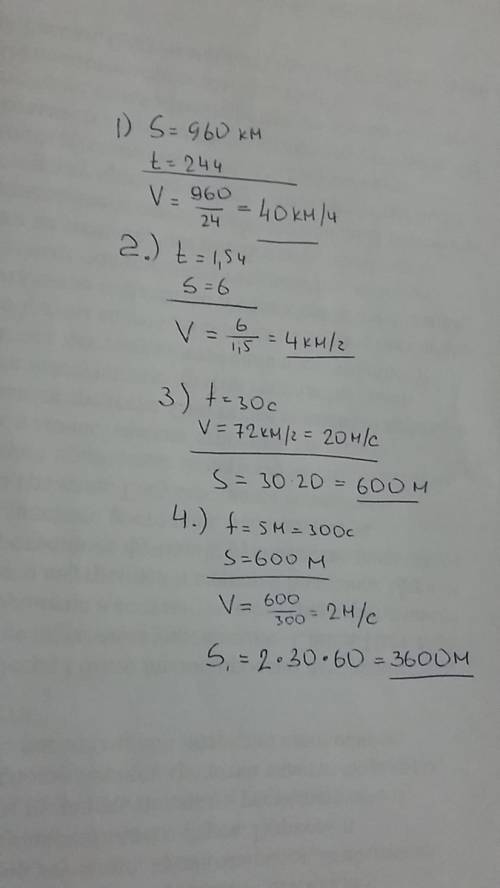 1) S = 960 км
t = 24ч
V = 960/24 = 40км/ч
2.) t = 1,5ч
S = 6
V = 6/1,5 = 4км/г
3) t = 30с
V = 72км/г = 20м/с
S = 30·20 = 600м
4.) t = 5м = 300с
S = 600м
V = 600/300 = 2м/с
S₁ = 2·30·60 = 3600м